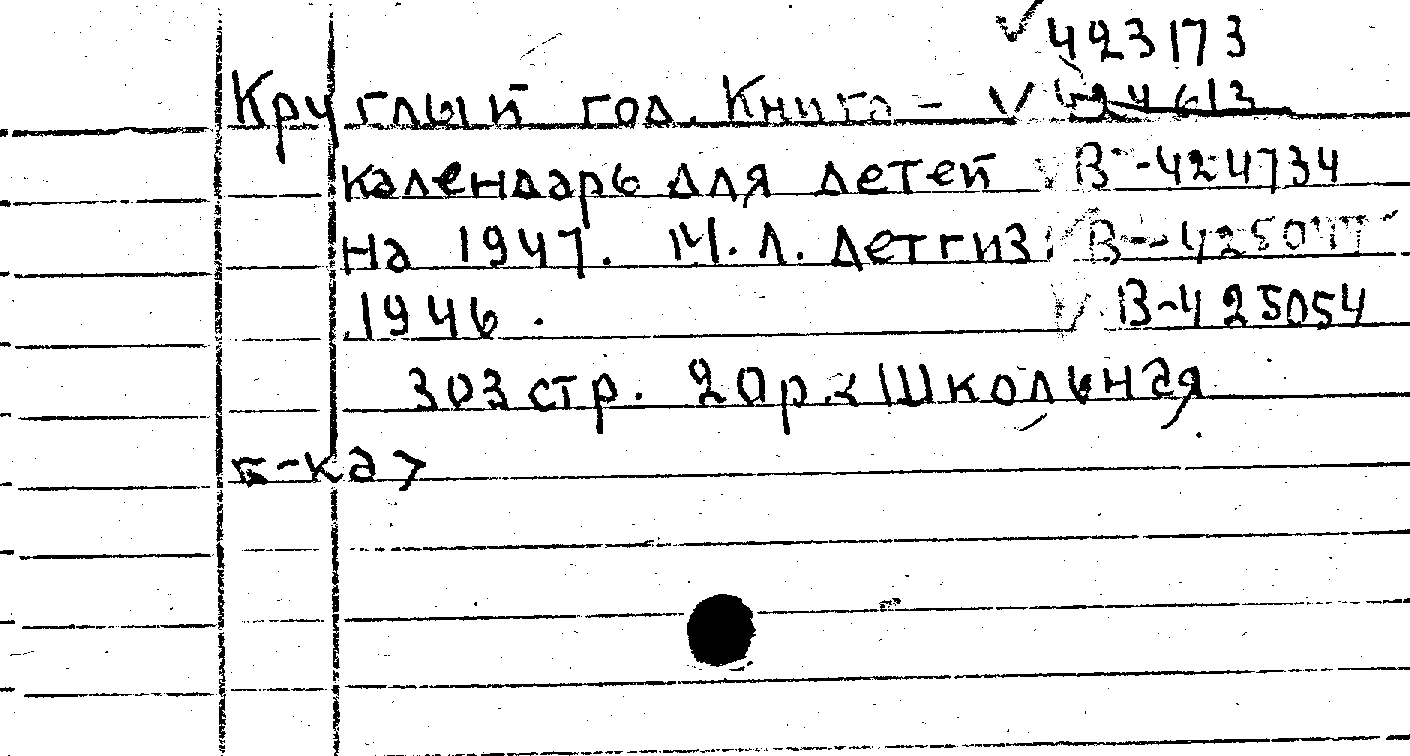 √ 423173
Круглый год. Книга – √ 424613
календарь для детей √ В-424734
на 1947. М.Л. Детгиз √
1946. √ В-425054
303 стр. 20р. <Школьная
б-ка>